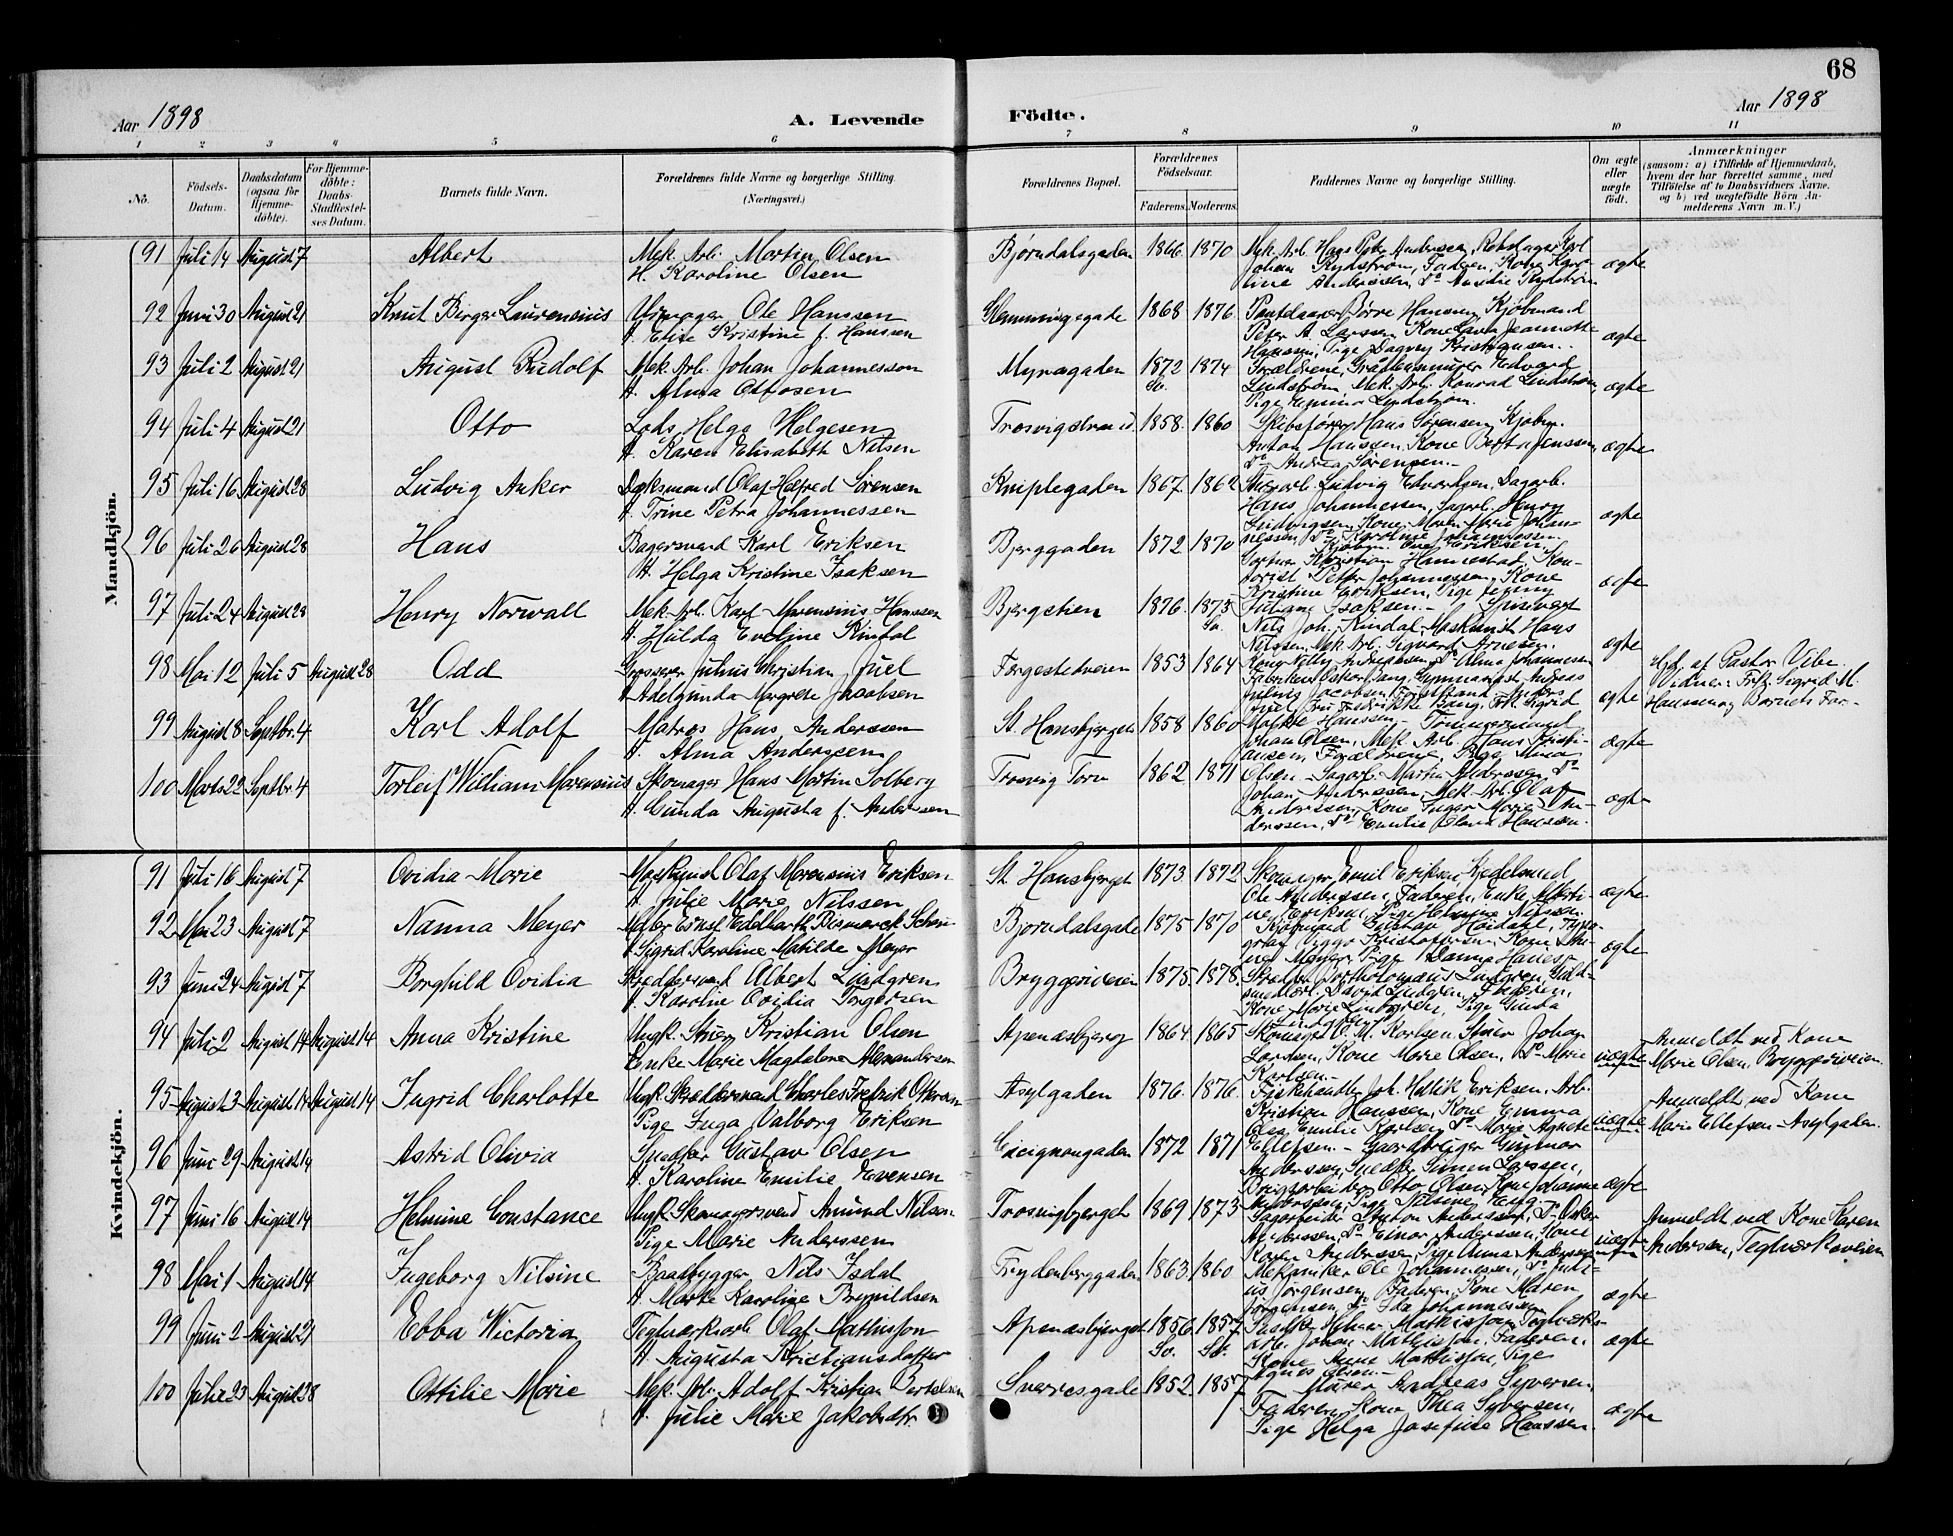 68
Aar 1898
A. Levende
Födte.
Aar 1898
1 2 3 4 5 6 7 8 9 10 11
No.
Födsels-
Datum.
Daabsdatum
(ogsaa for
Hjemme-
döbte).
For Hjemme-
döbte:
Daabs-
Stadfæstel-
ses Datum.
Barnets fulde Navn.
Forældrenes fulde Navne og borgerlige Stilling
(Næringsvei.)
Forældrenes Bopæl.
Forældrenes
Födselsaar.
Faderens. Moderens.
Faddernes Navne og borgerlige Stilling.
Om ægte
eller
uægte
födt.
Anmærkninger
(saasom: a) i Tilfælde af Hjemmedaab,
hvem der har forrettet samme, med
Tilföielse af to Daabsvidners Navne.
og b) ved uægtefödte Börn An-
melderens Navn m. V.)
Mandkjön.
91 Juli 14 August 7 Albert Mek. Arb. Martin Olsen
H. Karoline Olsen
Bjørndalsgaden 1866. 1870
Johan Rydstrøm, Faderen, Kone Karo-
line Anderssen, Do
ægte
92 Juni 30 August 21 Knut Birger Laurensius Urmager Ole Hanssen
H. Elise Kristine f. Hanssen
Glemmingegade 1868 1876
Børre Hanssen, Kjøbmand
Peter A. Larssen, Kone Laura Jeannette
Hanssen, Pige Dagny Kristiansen.
ægte
93 Juli 2 August 21 August Rudolf Mek. Arb. Johan Johannesson
H. Alma Ottosen
Myragaden 1872 Sv. 1874
Forældrene, Edvard
Lindstrøm, Mek. Arb. Konrad Lindstrøm,
Pige Lindstrøm.
ægte
94 Juli 4 August 21 Otto Lods Helge Helgesen
H. Karen Elisabeth Nilsen
Trosvigstrand 1858. 1860
Skibsfører Hans Sørensen, Kjøbm.
Anton Hanssen, Kone Jenssen,
Do Andrea Sørensen.
ægte
95 Juli 16 August 28 Ludvig Anker Dæksmand Olaf Halfred Sørensen
H. Trine Petra Johannessen
Kniplegaden 1867. 1862
Ludvig Edvardsen, Dagarb.
Hans Johannessen, Henry
Ludvigsen, Kone Maren Marie Johan-
nessen, Do Karoline Johannessen.
ægte
96 Juli 26 August 28 Hans Bagersvend Karl Eriksen
H. Helga Kristine Isaksen
Bjerggaden 1872 1870
Kjøbm. Eriksen,
Gartner Kristian Hannestad, Kon-
torist Petter Johannessen, Kone
Kristine Eriksen, Pige Jenny
Isaksen.
ægte
97 Juli 24 August 28 Henry Norwall Mek. Arb. Karl Marensius Hanssen
H. Hulda Eveline Kindal
Bjergstien 1876. 1875 Sv.
Nils Joh. Kindal, Maskinist Hans
Nilssen, Mek. Arb. Sigvard Arnesen,
Kone Nelly Andreassen, Do Alma Johannesen
ægte
98 Mai 12 Juli 5 August 28 Odd Grosserer Julius Christian Juel
H. Adelgunda Margrete Jacobsen
Færgestedveien 1853 1864
Fabrikeier Oskar Bang, Gymnasiast Andreas
Juel, Fru Fredrikke Bang, Frk. Sigrid
ægte
Hjd. af Pastor Vibe.
Vidner: Frk. Sigrid M.
Hanssen og Barnets Far-
99 August 8 Septbr. 4 Karl Adolf Matros Hans Anderssen
H. Alma Anderssen
St. Hansbjerget 1858 1860
Hanssen. Tømmermand
Johan Olsen, Mek. Arb. Hans Kristi-
ansen, Forældrene, Pige Minna
Olsen
ægte
100 Marts 22 Septbr. 4 Torleif William Marensius Skomager Hans Martin Solberg
H. Gunda Augusta f. Anderssen
Trosvig Torv 1862. 1871
Martin Anderssen, Do
Johan Anderssen, Mek. Arb. Olaf
Anderssen, Kone Inger Marie An-
derssen, Do Emilie Hanssen.
ægte
Kvindekjön.
91 Juli 16 August 7 Ovidia Marie Maskinist Olaf Marensius Eriksen
H. Julie Marie Nilssen
St. Hansbjerget 1873. 1872
Skomager Emil Eriksen, Kjedelsmed
Ole Anderssen, Faderen, Enke Alberti-
ne Eriksen, Pige Helmine Nilssen
ægte
92 Mai 23 August 7 Nanna Meyer Maler Ernst Edelhardt Bismarck
H. Sigrid Karoline Matilde Meyer
Bjørndalsgade 1875 1870
Kjøbmand Gustav Høidahl, Typo-
graf Viggo Kristoffersen, Kone
Meyer, Pige
ægte
93 Juni 24 August 7 Borghild Ovidia Skræddersvend Albert Lundgren
H. Karoline Ovidia Torgersen
Bryggeriveien 1875. 1878.
Skrædder Bartholomæus Lundgren, Guld-
smedlærl. David Lundgren, Faderen,
Kone Marie Lundgren, Pige Gunda
Lundgren
ægte
94 Juli 2 August 14 August 14 Anna Kristine Ungk. Stuer Kristian Olsen
Enke Marie Magdalene Alexandersen
Apenæsbjerg 1864. 1865
Skomager O. M. Karlsen, Stuer Johan
Larssen, Kone Marie Olsen, Do Marie
Karlsen.
uægte
Anmeldt ved Kone
Marie Olsen, Bryggeriveien.
95 August 3 August 14 August 14 Ingrid Charlotte Ungk. Skræddersvend Charles Fredrik Ottersen
Pige Inga Valborg Eriksen
Asylgaden 1876. 1876.
Fiskehandler Joh. Eriksen, Arb.
Kristian Hanssen, Kone Emma
Olea Emilie Karlsen, Do Marie Agnete
Ellefsen.
uægte
Anmeldt ved Kone
Marie Ellefsen - Asylgaden.
96 Juni 29 August 14 Astrid Olivia Snedker Gustav Olsen
H. Karoline Emilie Evensen
Cicignongaden 1872 1871
Gunnar
Anderssen, Snedker Simon Larssen,
Brugsarbeider Otto Olsen, Kone Johanne
ægte
97 Juni 16 August 14 Helmine Constance Ungk. Skomagersvend Amund Nilsen
Pige Marie Anderssen
Trosvigbjerget 1869 1873
Sagarbeider Anton Anderssen, Do Oskar
Anderssen, Do Einar Anderssen, Kone
Karen Anderssen, Pige Anna Anderssen
uægte
Anmeldt ved Kone Karen
Andersen, Teglværksveien
98 Mai 1 August 14 Ingeborg Nilsine Baadbygger Nils Isdal
H. Marte Karoline Brynildsen
Frydenberggaden 1863. 1860.
Mekaniker Ole Johannessen, Do Juli-
us Jørgensen, Faderen, Kone Maren
Jørgensen, Do Ida Johannessen
ægte
99 Juni 2 August 21 Ebba Victoria Teglværksarb. Olaf Mathisson
H. Augusta Kristiansdatter
Apenæsbjerget 1856. Sv. 1857 Sv.
Mathisson, Teglværks-
arb. Johan Mathisson, Faderen,
Kone Anna Mathisson, Pige
Agnes Olsen.
ægte
100 Juli 23 August 28 Ottilie Marie Mek. Arb. Adolf Kristian Bertelsen
H. Julie Marie Jakobsdtr
Sverresgade 1852. 1857
Murer Andreas Syversen,
Faderen, Kone Thea Syversen,
Pige Helga Josefine Hanssen.
ægte